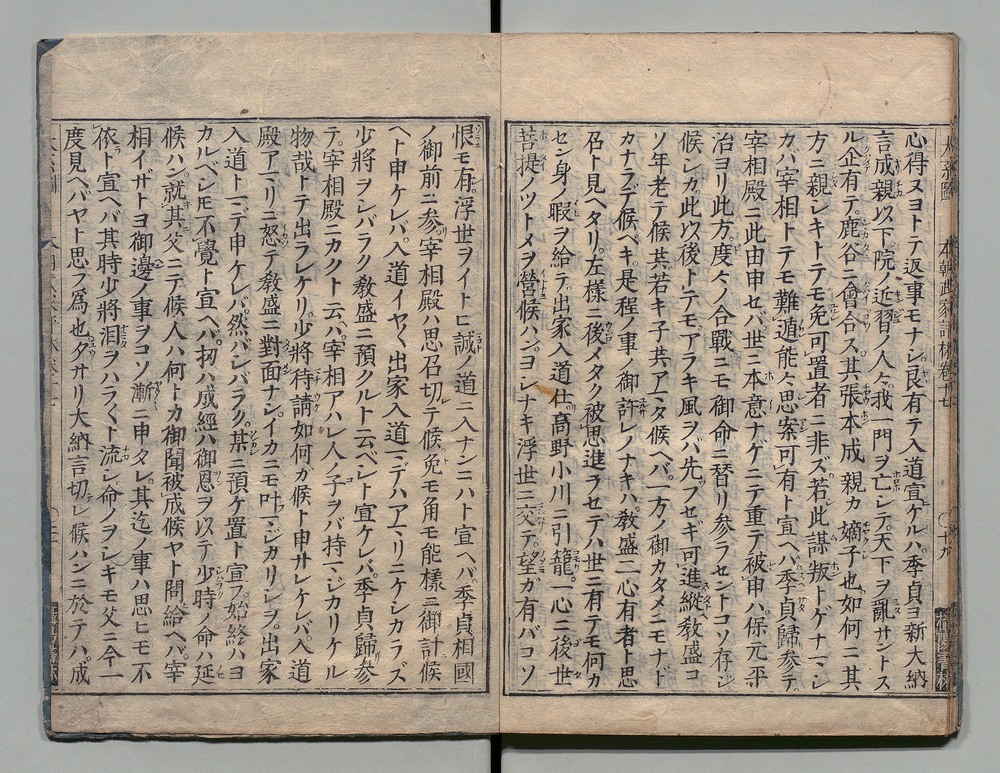 心得ヌヨトテ返事モナシ良有テ入道宣ケルハ季貞ヨ新大納
言成親以下院ノ近習ノ人々我一門ヲ亡シテ天下ヲ亂サントス
ル企有テ鹿谷ニ會合ス其張本成親カ嫡子也如何ニ其
方ニ親シキトテモ免可置者ニ非ズ若此謀叛トゲナマシ
カバ宰相トテモ難遁能々思案可有ト宣ヘハ季貞歸參テ
宰相殿ニ此由申セバ世ニ本意ナゲニテ重テ被申ハ保元平
治ヨリ此方度々ノ合戰ニモ御命ニ替リ參ラセントコソ存シ
候シカ此以後トテモアラキ風ヲバ先フセギ可進縱敎盛コ
ソ年老テ候共若キ子共アマタ候ヘバ一方ノ御カタメニモナト
カナラデ候ベキ是程ノ事ノ御許レノナキハ敎盛二心有者ト思
召ト見ヘタリ左樣ニ後メタク被思進ラセテハ世ニ有テモ何カ
セン身ノ暇ヲ給テ出家入道仕高野小川ニ引籠一心ニ後世
菩提ノツトメヲ營候ハンヨシナキ浮世ニ交テ望カ有バコソ
恨モ有浮世ヲイトヒ誠ノ道ニ入ナンニハト宣ヘバ季貞相國
ノ御前ニ參宰相殿ハ思召切テ候免モ角モ能樣ニ御計候
ヘト申ケレバ入道イヤく出家入道マデハアマリニケシカラズ
少將ヲシバラク敎盛ニ預クルト云ベシト宣ケレバ季貞歸參
テ宰相殿ニカクト云バ宰相アハレ人ノ子ヲバ持マジカリケル
物哉トテ出ラレケリ少將待請如何カ候ト申サレケレバ入道
殿アマリニ怒テ敎盛ニ對面ナシイカニモ叶マジカリシヲ出家
入道トマデ申ケレバ然バシバラク某ニ預ケ置ト宣フ始終ハヨ
カルベシ氏不覺ト宣ヘバ扨ハ成經ハ御恩ヲ以テ少時ノ命ハ延
候ハン就其父ニテ候人ハ何トカ御聞被成候ヤト問給ヘバ宰
相イザトヨ御邊ノ事ヲコソ漸ニ申タレ其迄ノ事ハ思ヒモ不
依ト宣ヘバ其時少將泪ヲハラくト流シ命ノヲシキモ父ニ今一
度見ヘバヤト思フ爲也ダサリ大納言切レ候ハンニ於テハ成